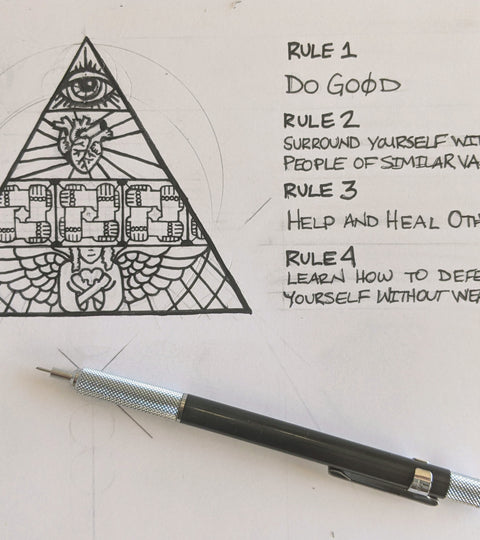 RULE 1
DO GOØD
RULE 2
SURROUND YOURSELF WIT
PEOPLE OF SIMILAR VA
RULE 3
HELP AND HEAL OTH
RULE 4
LEARN HOW TO DEFE
YOURSELF WITHOUT WEA